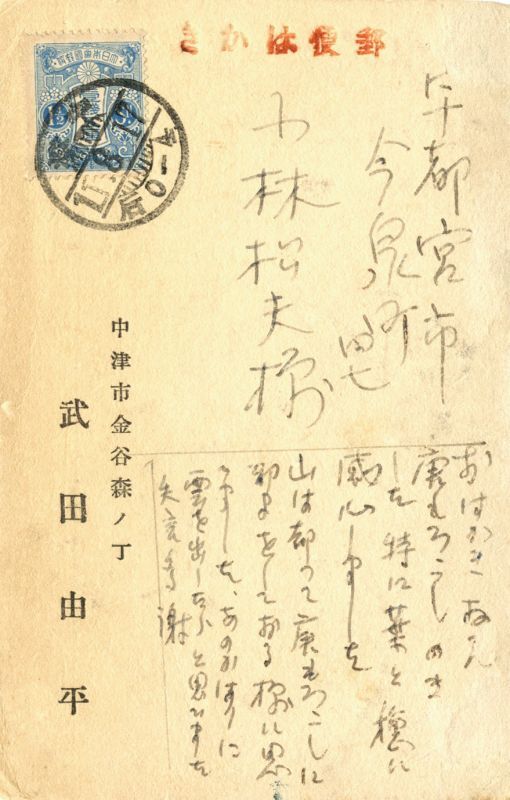 郵便はがき
宇都宮市
今泉町
小林松夫様
おはがき拝見
唐もろこしのき
した 特に葉と穂に
感心しました
山は却つて唐もろこしに
邪まをしておる様に思
ひました、あのかはりに
雲を出したらと思ひました
失言多謝
中津市金谷森ノ丁
武田由平
大日本帝國郵便
11.8.17
后0-4